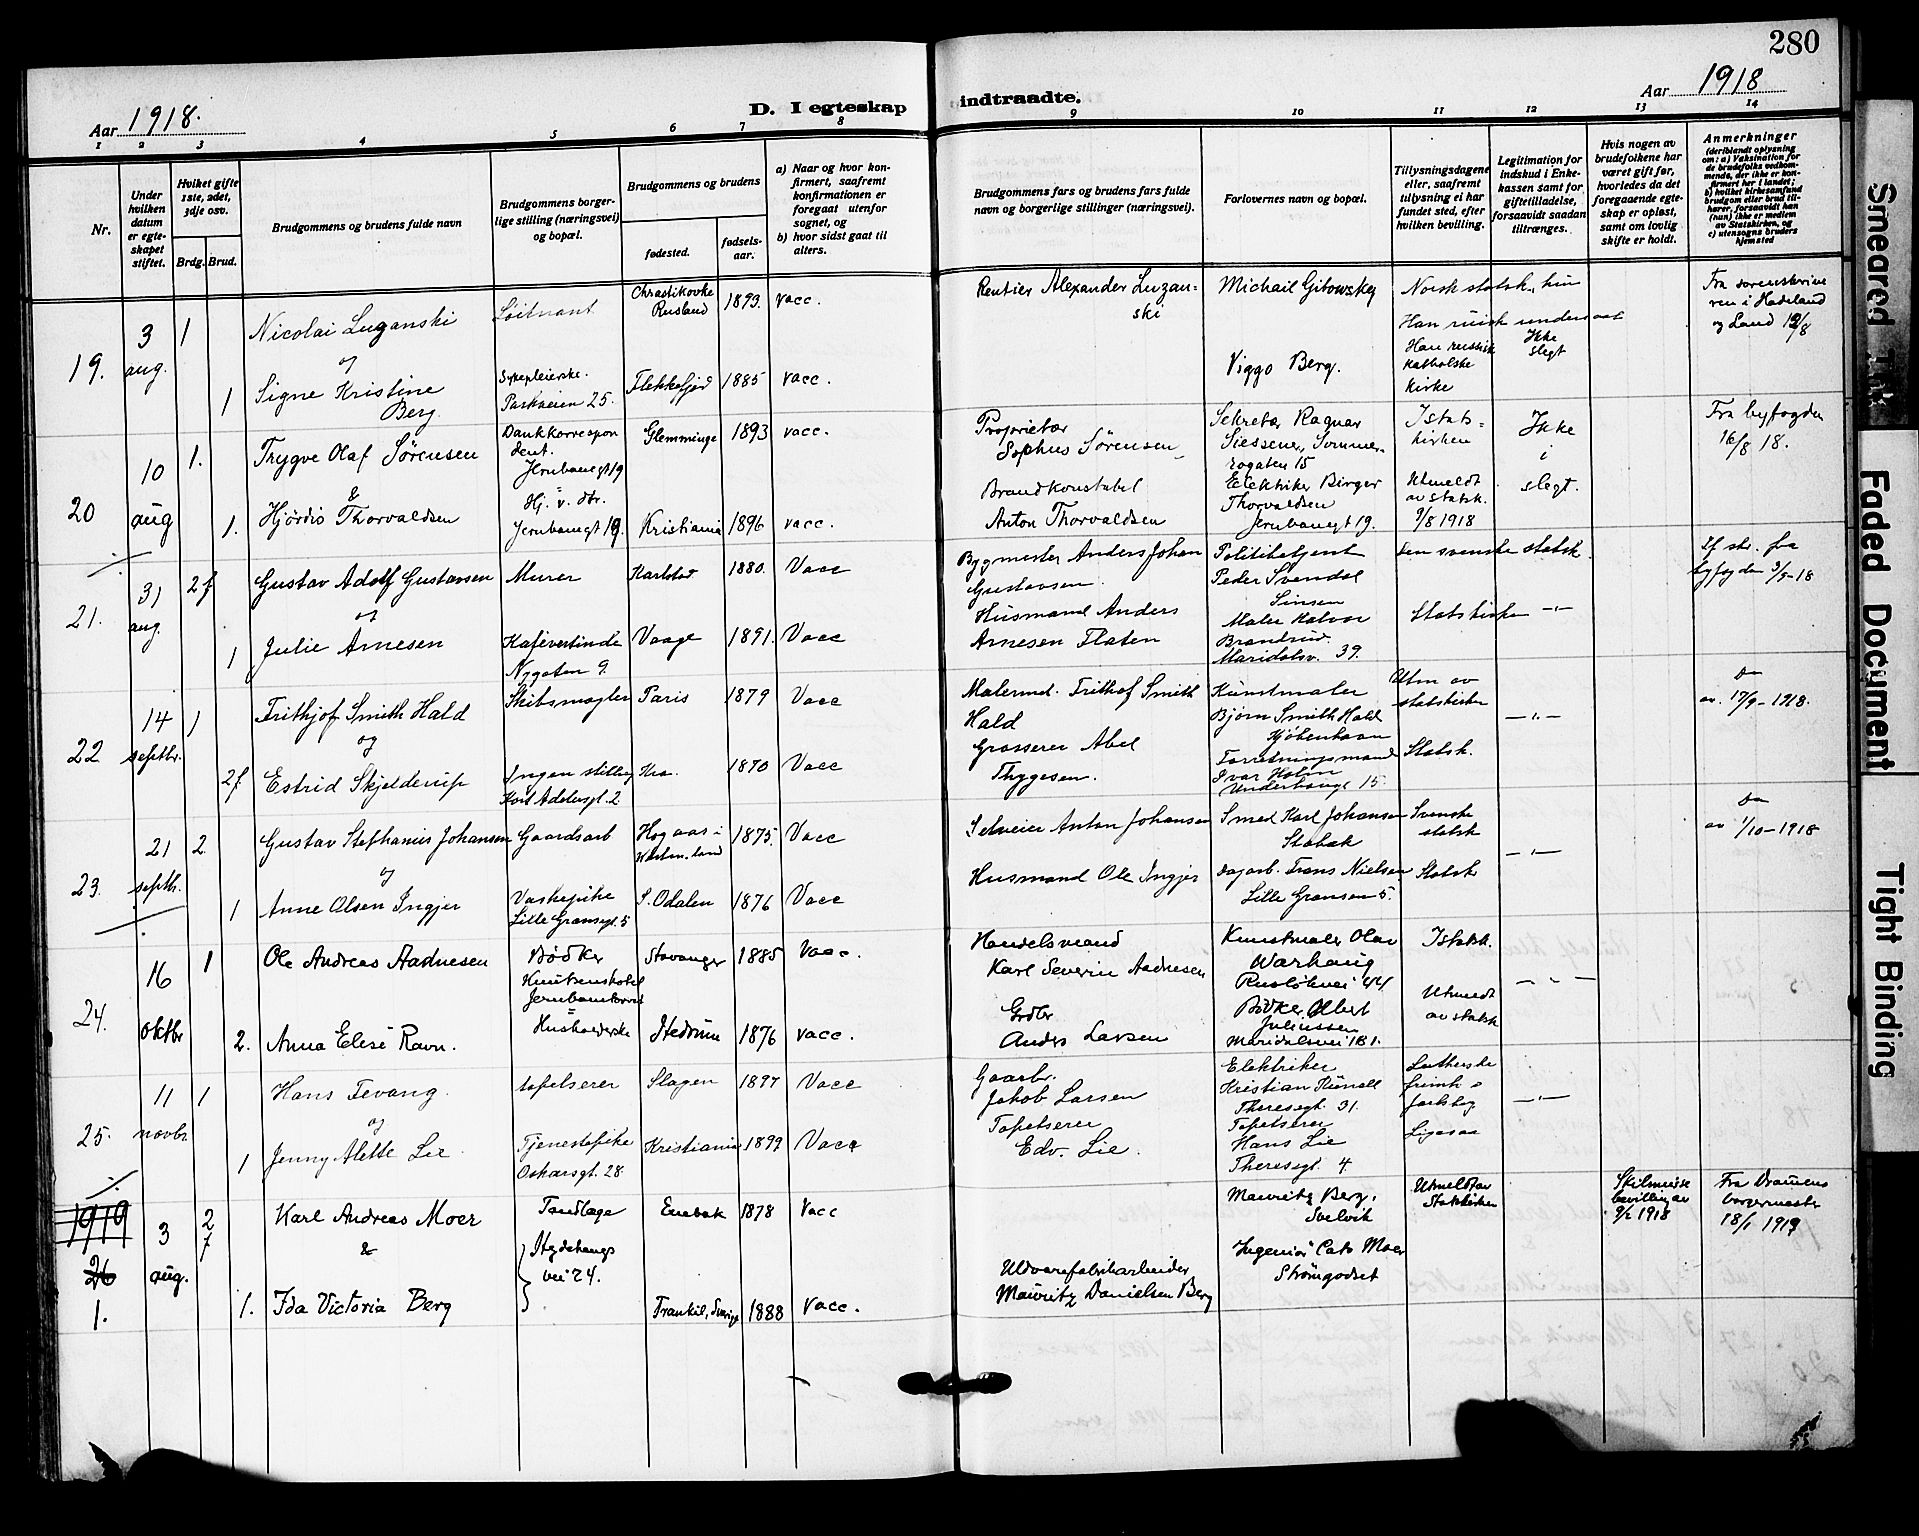 280
Aar 1918.
D. I egteskap
indtraadte.
Aar 1918
1 2 3 4 5 6 7 8 9 10 11 12 13 14
Nr.
Under hvilken datum er egteskapet stiftet.
Hvilket gifte 1ste, 2det, 3dje osv.
Brdg. Brud.
Brudgommens og brudens fulde navn
Brudgommens borgerlige stilling (næringsvei) og bopæl.
Brudgommens og brudens
fødested.
fødselsaar.
a) Naar og hvor konfirmert, saafremt konfirmationen er foregaat utenfor sognet, og
b) hvor sidst gaat til alters.
Brudgommens fars og brudens fars fulde navn og borgerlige stillinger (næringsvei).
Forlovernes navn og bopæl.
Tillysningsdagene eller, saafremt tillysning ei har fundet sted, efter hvilken bevilling.
Legitimation for indskud i Enkekassen samt for giftetilladelse, forsaavidt saadan tiltrænges.
Hvis nogen av brudefolkene har været gift før, hvorledes da det foregaaende egteskap er opløst, samt om lovlig skifte er holdt.
Anmerkninger
(deriblandt oplysning om: a) Vaksination for de brudefolks vedkommende, der ikke er konfirmert her i landet; b) hvilket kirkesamfund brudgom eller brud tilhører, forsaavidt han (hun) ikke er medlem av Statskirken, og c) utensogns bruders hjemsted
19. 3 aug. 1
Nicolai Luganski
og
1 Signe Kristine Berg.
Løitnant
Sykepleierske.
Parkveien 25.
Rusland 1893. vacc.
Flekkefjord 1885 vacc.
Rentier Alexander Luganski
Michail Gitowsky
Viggo Berg.
Norsk statsk. hun
Han russisk undersaat
Han russisk katholske kirke
Ikke slegt
Fra sorenskriveren i Hadeland og Land 12/8
20 10 aug 1.
Trygve Olaf Sørensen
&
1. Hjørdis Thorvaldsen
Bankkorrespondent.
Jernbanegt 19
Hj. v. dtr.
Jernbanegt 19.
Glemminge 1893 vacc.
Kristiania 1896 vacc.
Proprietær
Sophus Sørensen
Brandkonstabel
Anton Thorvaldsen
Sekretær Ragnar
Siessener, Sommerrogaten 15
Elektriker Birger
Thorvaldsen
Jernbanegt 19.
I statskirken
Utmeldt
av statsk.
9/8 1918
Ikke
i
slegt.
Fra byfogden
16/8 18.
21. 31 aug. 2f
Gustav Adolf Gustavsen
og
1 Julie Arnesen
Murer
Kafévertinde
Nygaten 9.
Karlstad 1880. Vacc
Vaage 1891. Vacc
Bygmester Anders Johan
Gustavsen.
Husmand Anders
Arnesen Flaten
Politibetjent
Peder Svendal
Sinsen
Maler Halvor
Brandrud.
Maridalsv. 39.
Den svenske statsk.
Statskirken -"-
If skr. fra
byfogden 3/9-18
22 14 septbr. 1
Frithjof Smith Hald
og
2f Estrid Skjelderup
Skibsmægler
Ingen stilling
Kort Adelersgt. 2
Paris 1879 Vacc
Kra. 1870 Vacc
Malermd. Frithof Smith
Hald
Grosserer Abel
Thygesen.
Kunstmaler
Bjørn Smith Hald
Kjøbenhavn
Forretningsmand
Ivar Holm
Underhaugsv. 15.
Utm av
statskirken
Statsk.
-"-
Do
av. 17/9-1918.
23. 21 septbr. 2
Gustav Stephanius Johansen
og
1 Anne Olsen Ingjer
Gaardsarb
Vaskepike
Lille Grænsegt. 5
1875. Vacc
S. Odalen 1876 Vacc
Selveier Anton Johansen
Husmand Ole Ingjer
Smed Karl Johansen
Stabæk
dagarb. Frans Nielsen
Lille Grænsen 5.
Svenske
statsk
Statsk
-"-
Do
av 1/10-1918
24. 16 oktbr 1
Ole Andreas Aadnesen
2. Anna Elise Ravn.
Bødker
Knutsenshotel
Jernbanetorvet
Husholderske
Stavanger 1885 Vacc.
Hedrum 1876 vacc.
Handelsmand
Karl Severin Aadnesen
Grdbr
Anders Larsen
Kunstmaler Olav
Warhaug
Rusløkvei 44
Bødker Albert
Juliussen
Maridalsvei 181.
I statsk.
Utmeldt
av statsk
-"-
25. 11 novbr 1
Hans Tevang.
og
1 Jenny Alette Lie.
tapetserer
Tjenestepike
Oskarsgt. 28
Slagen 1897 Vacc
Kristiania 1899 Vacc
Gaarbr.
Jakob Larsen
Tapetserer
Edv. Lie.
Elektriker
Kristian
Theresegt. 31.
Tapetserer
Hans Lie
Theresegt. 4.
Lutherske
frimh i
Jarlsberg
Ligesaa
-"-
1919
26
1. 3 aug. 2f
Karl Andreas Moer
&
1. Ida Victoria Berg
Tandlæge
Heydehaugs
vei 24.
Enebak 1878 Vacc
Frankil, Sverige 1888 Vacc.
Uldvarefabrikarbeider
Mauritz Danielsen Berg
Mauritz Berg.
Svelvik
Ingeniør Cato Moer
Strømgodset
Utmeldt av
Statskirken
Skilsmisse
bevilling av
9/2 1918
Fra Dramens
borgermester
18/1 1919
Smeared Ink
Faded Document
Tight Binding